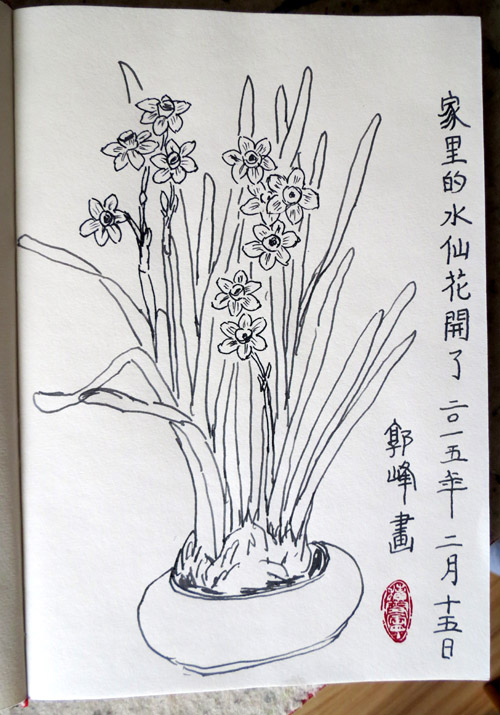 家里的水仙花開了 二〇一五年 二月十五日
郭峰畫